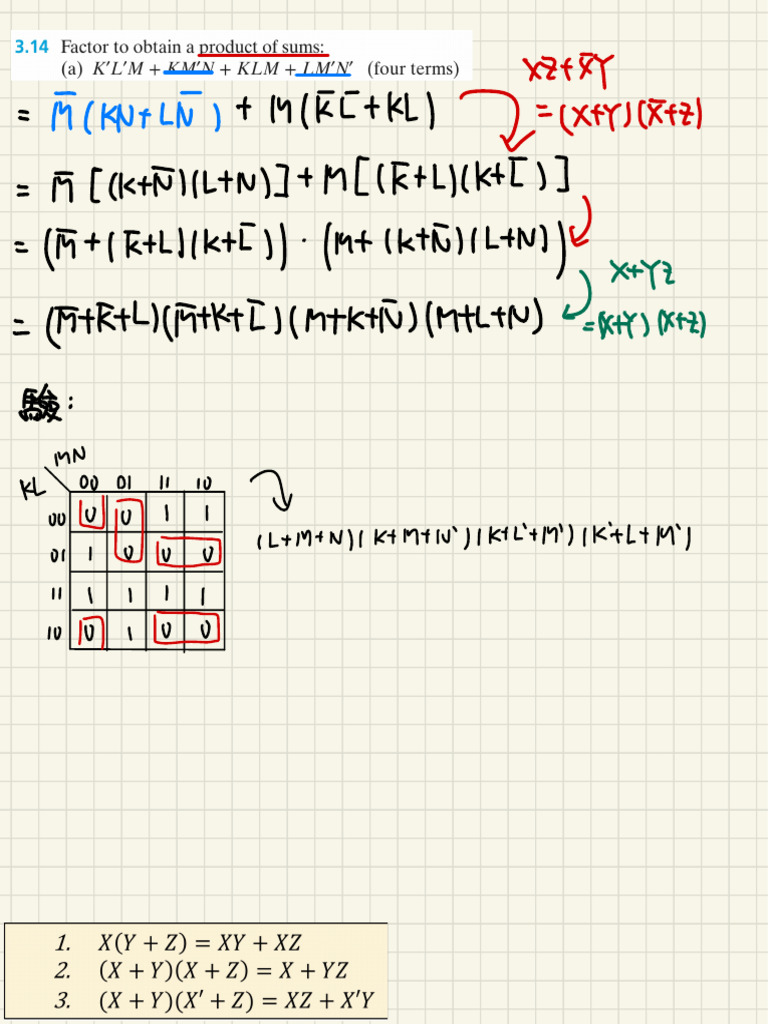 3.14 Factor to obtain a product of sums:
(a) K'L'M + KM'N + KLM + LM'N' (four terms)
XZ + X̄Y
= M̄ (KN + LN̄) + M (K̄L̄ + KL)
= (X+Y)(X̄+Z)
= M̄ [(K+N̄)(L+N)] + M [(K̄+L)(K+L̄)]
= (M̄ + (K̄+L)(K+L̄)) · (M + (K+N̄)(L+N))
X+YZ
= (M̄+K̄+L)(M̄+K+L̄)(M+K+N̄)(M+L+N)
= (X+Y)(X+Z)
驗:
MN
KL 00 01 11 10
00 0 0 1 1
(L+M+N)(K+M+N')(K+L'+M')(K'+L+M')
01 1 0 0 0
11 1 1 1 1
10 0 1 0 0
1. X(Y + Z) = XY + XZ
2. (X + Y)(X + Z) = X + YZ
3. (X + Y)(X' + Z) = XZ + X'Y